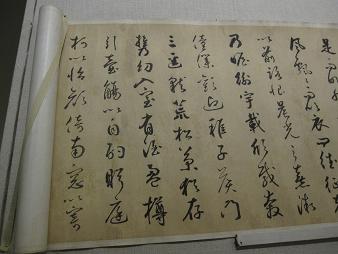 是
以前路恨晨光之熹微
乃瞻衡宇載欣載奔
僮僕歡迎稚子候門
三逕就荒松菊猶存
攜幼入室有酒盈樽
引壺觴以自酌眄庭
柯以怡顏倚南窓以寄